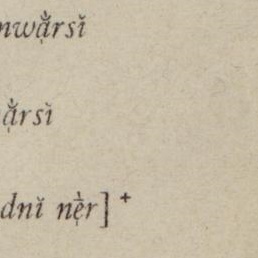 nwạ̊̀rsĭ
ạ̊̀rsì
dnĭ nẹ̀r] +